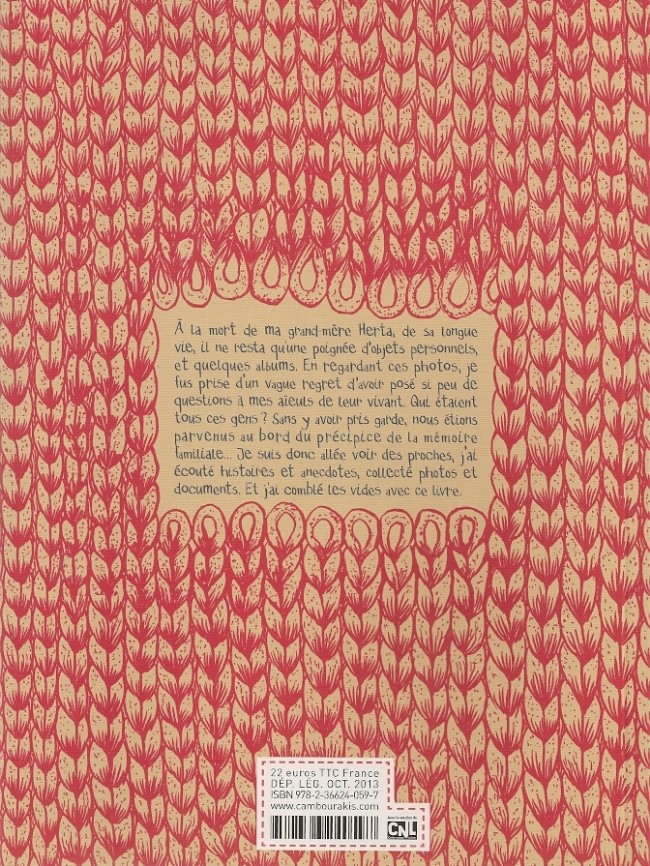 À la mort de ma grand-mère Herta, de sa longue
vie, il ne resta qu'une poignée d'objets personnels,
et quelques albums. En regardant ces photos, je
fus prise d'un vague regret d'avoir posé si peu de
questions à mes aïeuls de leur vivant. Qui étaient
tous ces gens ? Sans y avoir pris garde, nous étions
parvenus au bord du précipice de la mémoire
familiale... Je suis donc allée voir des proches, j'ai
écouté histoires et anecdotes, collecté photos et
documents. Et j'ai comblé les vides avec ce livre.
22 euros TTC France
DÉP. LÉG. OCT. 2013
ISBN 978-2-36624-059-7
www.cambourakis.com
CNL